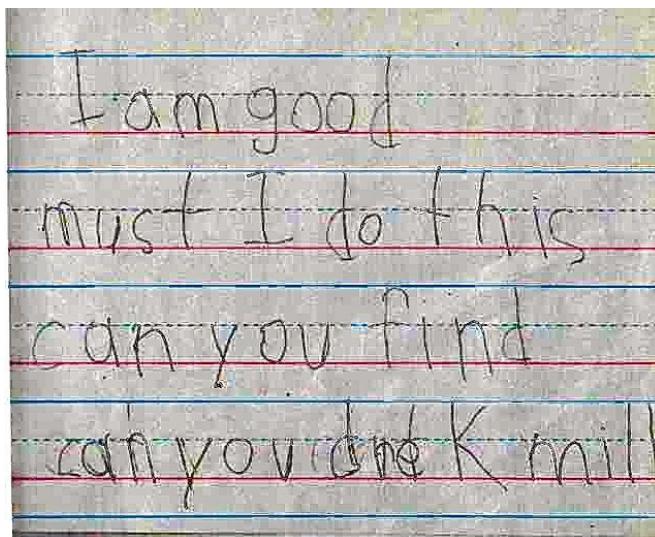 I am good
must I do this
can you find
can you K mil